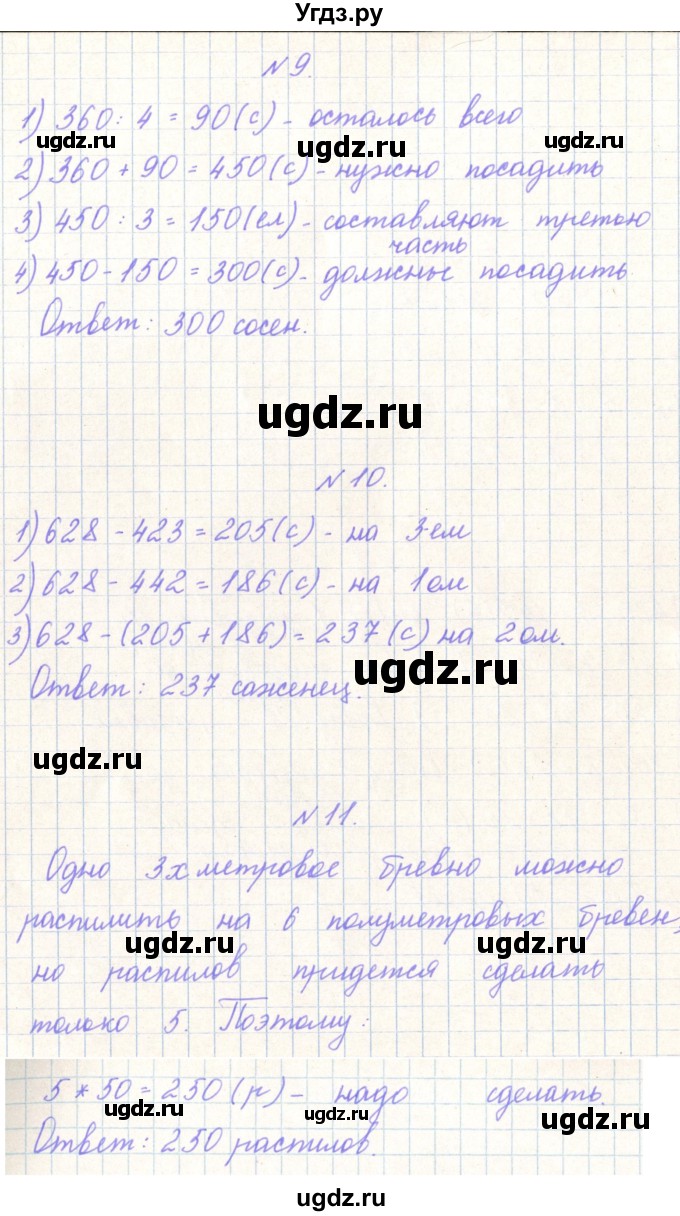 Угдз.ру
№ 9.
1) 360 : 4 = 90 (с) - осталось всего
ugdz.ru ugdz.ru ugdz.ru
2) 360 + 90 = 450 (с) - нужно посадить
3) 450 : 3 = 150 (ел) - составляют третью
часть
ugdz.ru ugdz.ru
4) 450 - 150 = 300 (с) - должны посадить
Ответ: 300 сосен.
ugdz.ru
№ 10.
1) 628 - 423 = 205 (с) - на 3ем
2) 628 - 442 = 186 (с) - на 1ом
3) 628 - (205 + 186) = 237 (с) на 2ом.
ugdz.ru
Ответ: 237 саженец.
ugdz.ru
№ 11.
Одно 3х метровое бревно можно
распилить на 6 полуметровых бревен,
ugdz.ru ugdz.ru
но распилов придется сделать
только 5. Поэтому:
5 * 50 = 250 (р) - надо сделать.
ugdz.ru ugdz.ru ugdz.ru
Ответ: 250 распилов.
ugdz.ru